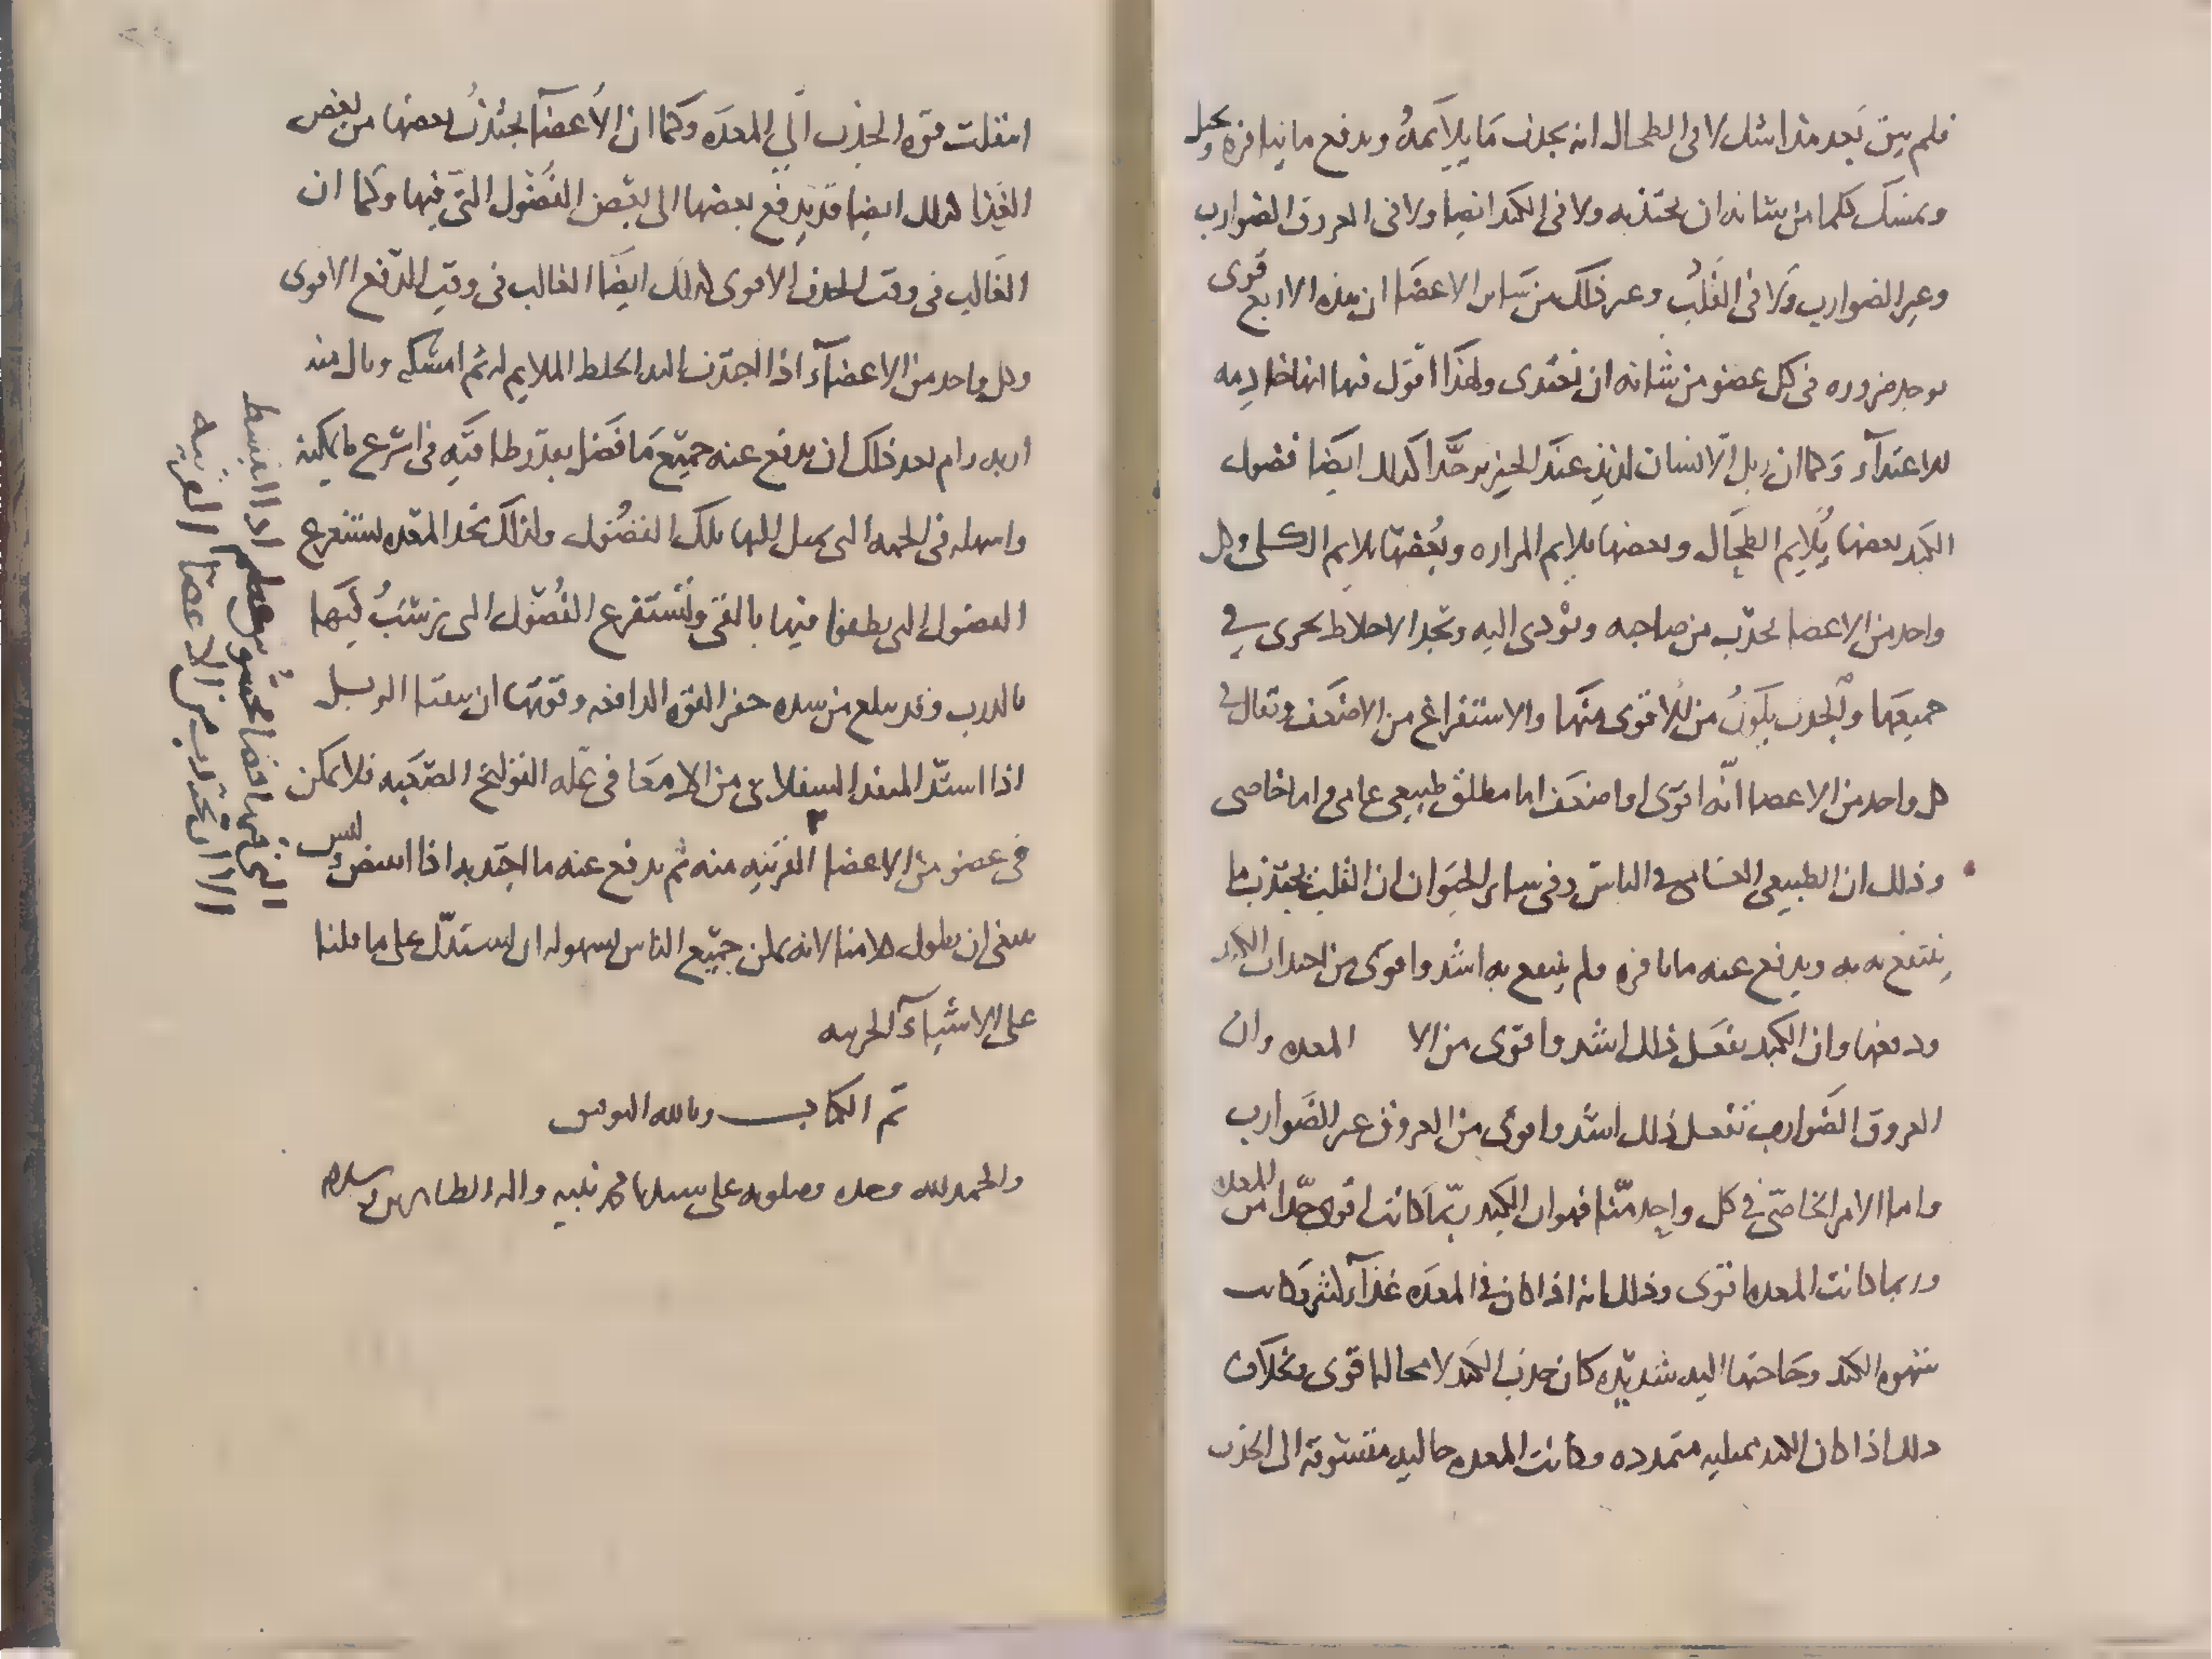 فلم يبق بعد هذا شك لا في الطحال انه يجذب ما يلايمه ويدفع ما ينافره ويحيل
ويمسك كلما من شانه ان يجتذبه ولا في الكبد ايضا ولا في العروق الضوارب
وغير الضوارب ولا في القلب وغير ذلك من ساير الاعضا ان هذه الاربع قوى
توجد ضروره في كل عضو من شانه ان يغتدى ولهذا اقول فيها انها خادمه
للاغتدآء وكما ان زبل الانسان لذيذ عند الخنزير جدا كذلك ايضا فضول
الكبد بعضها يلايم الطحال وبعضها يلايم المراره وبعضها يلايم الكلى وكل
واحد من الاعضا يجذب من صاحبه ويؤدى اليه وتجد الاخلاط تجرى في
جميعها والجذب يكون من الاقوى منها والاستفراغ من الاضعف ويقال في
كل واحد من الاعضا انه اقوى او اضعف اما مطلق طبيعي عامي واما خاصي
وذلك ان الطبيعي العامي في الناس وفي ساير الحيوان ان القلب يجتذب ما
ينتفع به ويدفع عنه ما نافره ولم ينتفع به اشد واقوى من اجتذاب الكبد
ودفعها وان الكبد تفعل ذلك اشد واقوى من الا المعده وان
العروق الضوارب تفعل ذلك اشد واقوى من العروق غير الضوارب
واما الامر الخاصي في كل واحد منا فهو ان الكبد ربما كانت اقوى جدا من المعده
وربما كانت المعده اقوى وذلك انه اذا كان في المعده غذآء كثير وكانت
شهوه الكبد وحاجتها اليه شديده كان جذب الكبد لا محاله اقوى وبخلاف
ذلك اذا كان الكبد ممتليه متمدده وكانت المعده خاليه متشوقه الى الجذب
انتقلت قوه الجذب الي المعده وكما ان الاعضآ يجتذب بعضها من بعض
الغذا كذلك ايضا قد يدفع بعضها الى بعض الفضول التي فيها وكما ان
الغالب في وقت الجذب الاقوى كذلك ايضا الغالب في وقت الدفع الاقوى
وكل واحد من الاعضآء اذا اجتذب اليه الخلط الملايم له ثم امسكه ونال منه
اربه رام بعد ذلك ان يدفع عنه جميع ما فضل بقدر طاقته في اسرع ما يمكنه
واسهله في الجهه التي تميل اليها تلك الفضول ولذلك تجد المعده تستفرغ
الفضول التي تطفوا فيها بالقى وتستفرغ الفضول التي ترسب فيها
بالذرب وقد يبلغ من شده حفز القوه الدافعه وقوتها ان يتقيا الزبل
اذا استد المنفذ السفلاني من الامعا في عله القولنج الصعبه فلا يمكن
في عضو من الاعضا القريبه منه ثم يدفع عنه ما اجتذبه اذا انقبض وليس
ينبغى ان نطول كلامنا لانه يمكن جميع الناس بسهوله ان يستدل على ما قلنا
على الاشيآء الجزييه
تم الكتاب وبالله التوفيق
والحمد لله وحده وصلوته على سيدنا محمد نبيه واله الطاهرين وسلامه
الا ان تجتذب من الاعضا القريبه
التي فيها فضا محسوس عظيم اذا انبسط